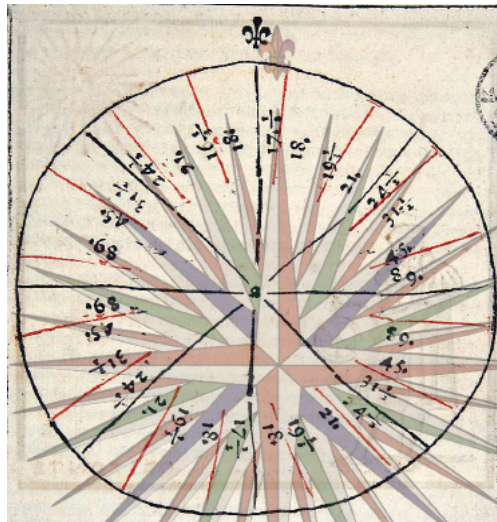 17½
18.
19½
21.
24½
31½
45.
45.
31½
24½
21.
19½
18.
17½
18
19½
21.
24½
31½
45.
89.
89.
45.
31½
24½
21.
18.